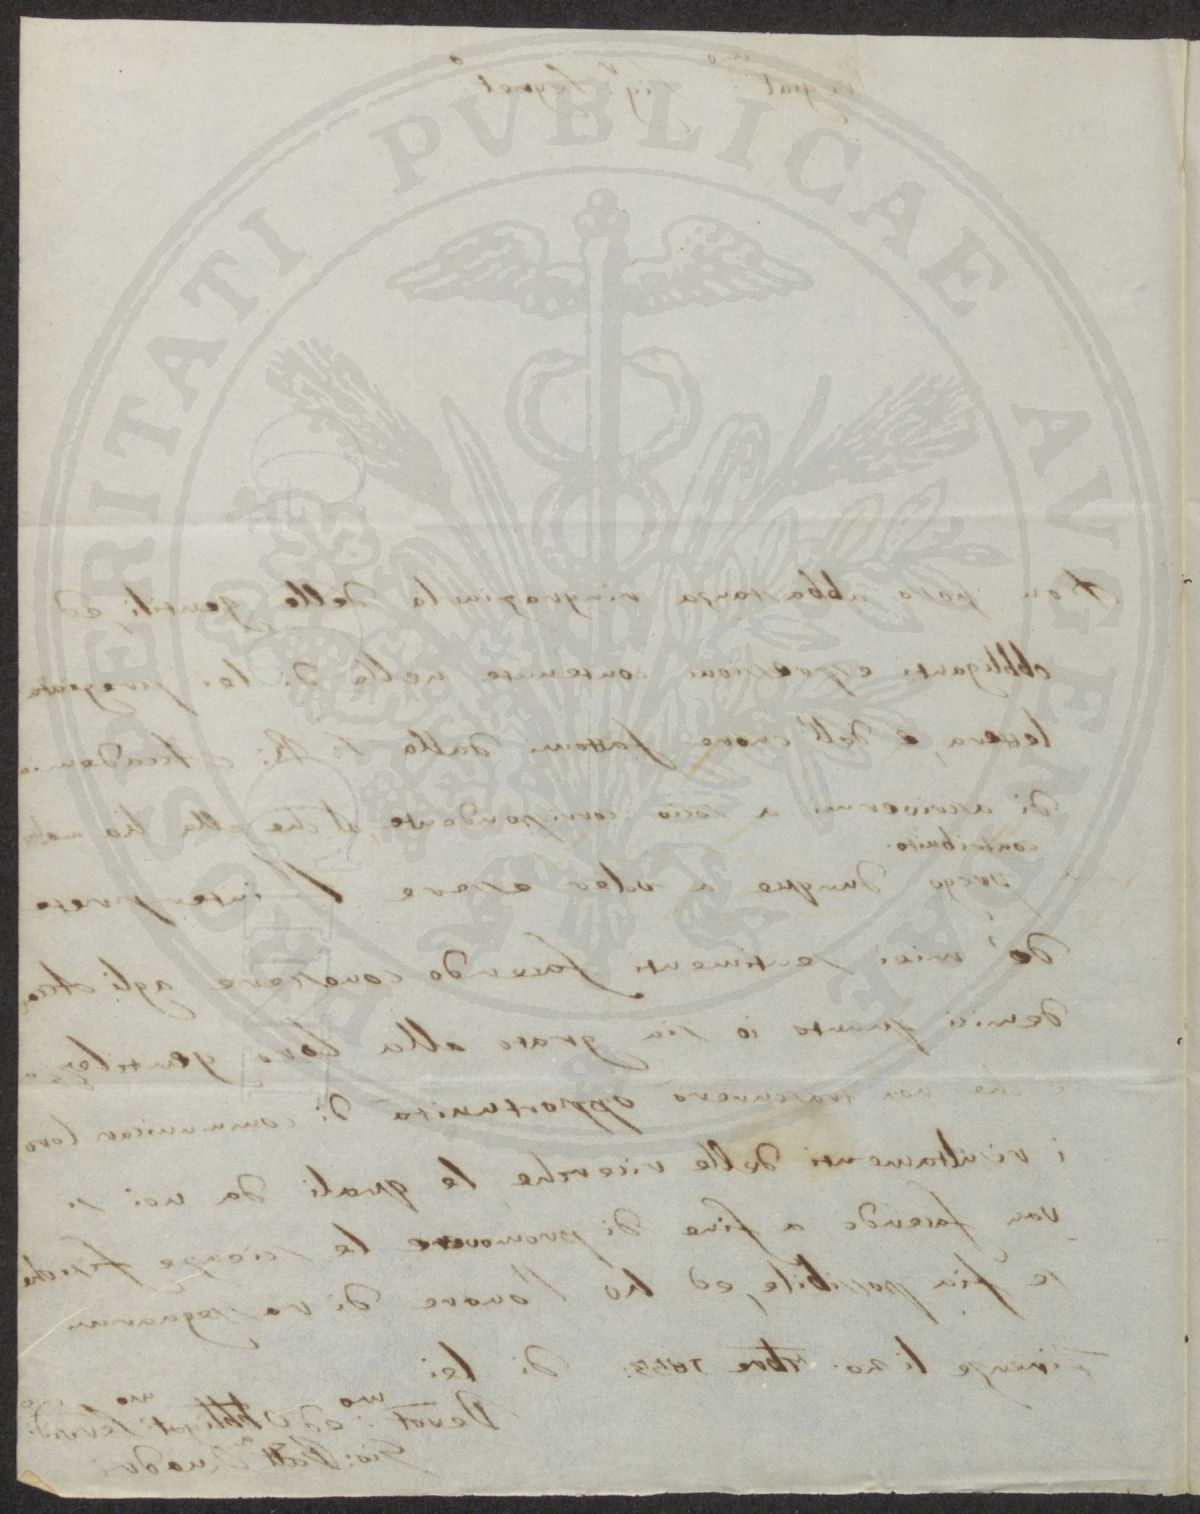 Pregiat.mo Sig.r Segret.o
Non posso abbastanza ringraziarla delle gentili, ed
obbliganti espressioni contenute nella di lei pregiata
lettera, e dell'onore fattomi dalla I. R. Accademia
di ascrivermi a socio corrispondente, al che ella ha molto
contribuito.
La prego dunque a voler essere l'interprete
de' miei sentimenti facendo conoscere agli Acca,
demici quanto io sia grato alla loro gentilezza
e che non trascurerò opportunità di comunicar loro
i risultamenti delle ricerche, le quali da noi si
van facendo a fine di promovere le scienze fisiche
se fia possibile, ed ho l'onore di rassegnarmi
Firenze li 20. 7bre di lei
Devot.mo ed Obbligat.mo Servid.e
Gio: Batt.a
PROSPERITATI PVBLICAE AVGENDAE